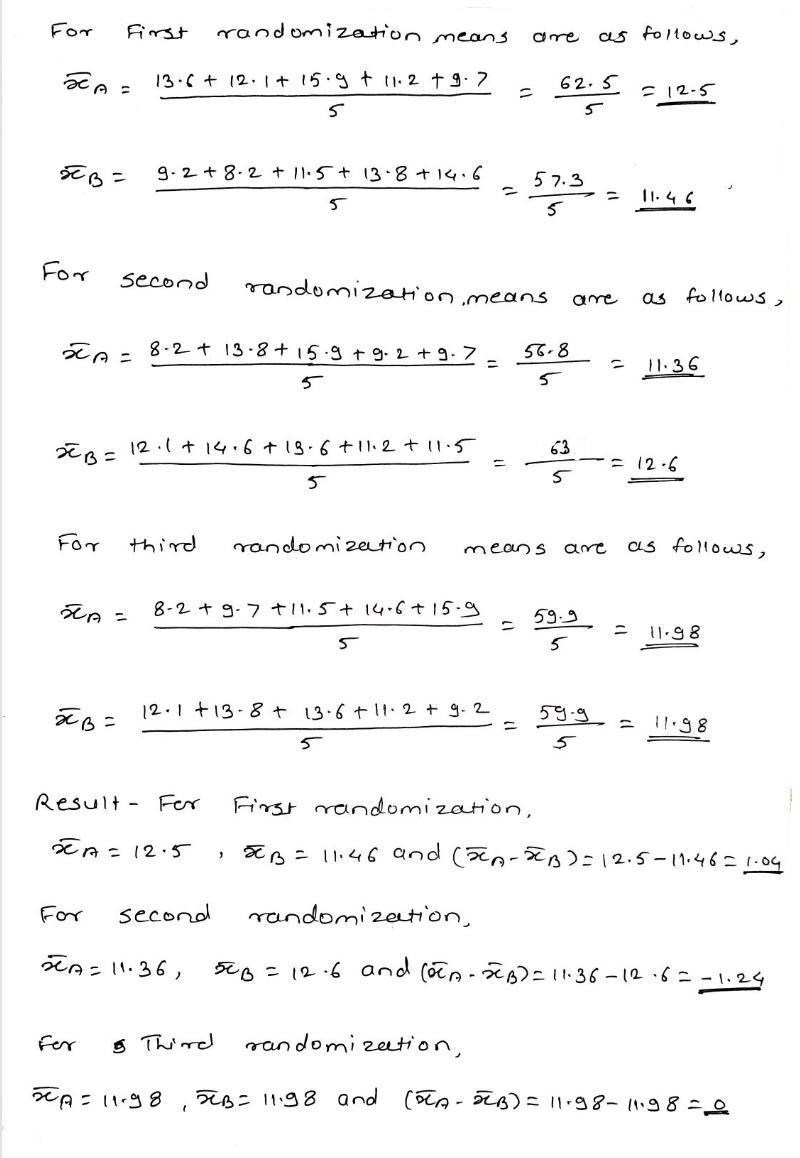 For First randomization means are as follows,
x̄A = 13.6 + 12.1 + 15.9 + 11.2 + 9.7 / 5 = 62.5 / 5 = 12.5
x̄B = 9.2 + 8.2 + 11.5 + 13.8 + 14.6 / 5 = 57.3 / 5 = 11.46
For second randomization, means are as follows,
x̄A = 8.2 + 13.8 + 15.9 + 9.2 + 9.7 / 5 = 56.8 / 5 = 11.36
x̄B = 12.1 + 14.6 + 13.6 + 11.2 + 11.5 / 5 = 63 / 5 = 12.6
For third randomization means are as follows,
x̄A = 8.2 + 9.7 + 11.5 + 14.6 + 15.9 / 5 = 59.9 / 5 = 11.98
x̄B = 12.1 + 13.8 + 13.6 + 11.2 + 9.2 / 5 = 59.9 / 5 = 11.98
Result - For First randomization,
x̄A = 12.5 , x̄B = 11.46 and (x̄A - x̄B) = 12.5 - 11.46 = 1.04
For second randomization,
x̄A = 11.36, x̄B = 12.6 and (x̄A - x̄B) = 11.36 - 12.6 = -1.24
For Third randomization,
x̄A = 11.98 , x̄B = 11.98 and (x̄A - x̄B) = 11.98 - 11.98 = 0